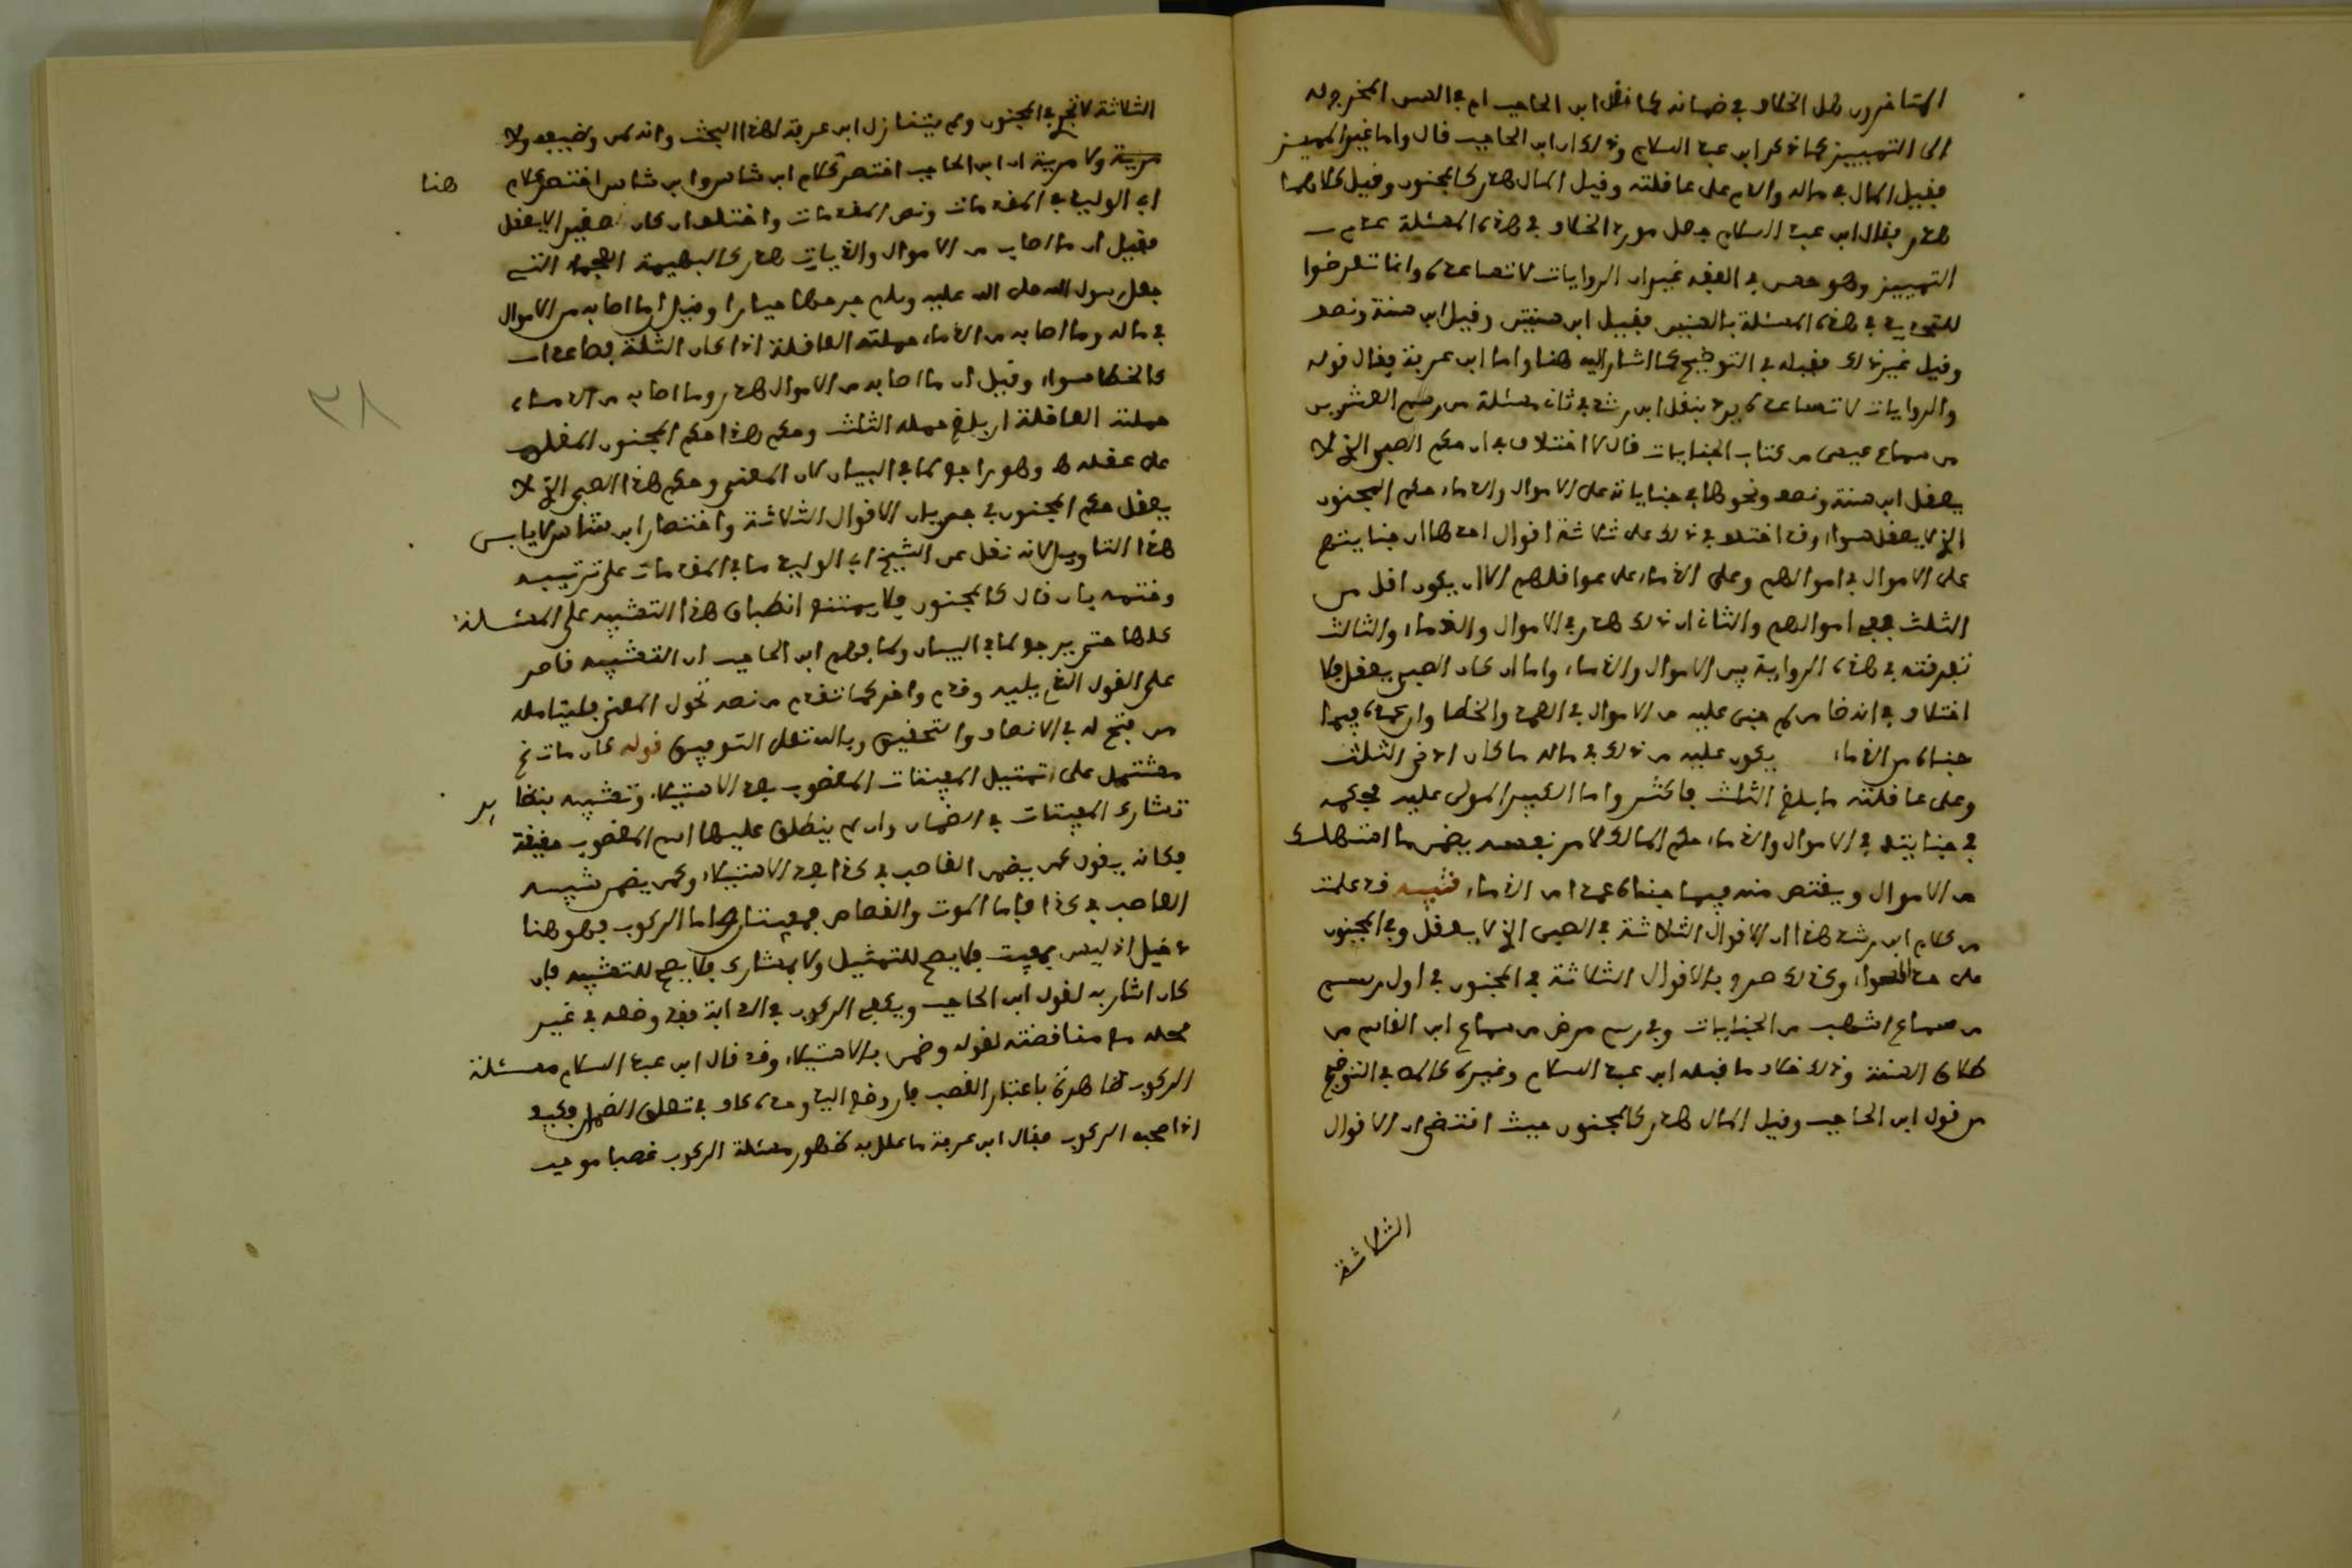 المتاخرون هل الخلاف في ضمانه كما نقل ابن الحاجب ام في السن المخرج له
الى التمييز كما ذكر ابن عبد السلام وذلك ان ابن الحاجب قال واما غير المميز
فقيل المال في ماله والدم على عاقلته وقيل المال هدر كالمجنون وقيل كلاهما
هدر فقال ابن عبد السلام جعل مورد الخلاف في هذه المسئلة عدم
التمييز وهو حسن في الفقه غير ان الروايات لا تساعده وانما تعرضوا
للتحديد في هذه المسئلة بالسنين فقيل ابن سنتين وقيل ابن سنة ونصف
وقيل غير ذلك فقبله في التوضيح كما اشار اليه هنا واما ابن عرفة فقال قوله
والروايات لا تساعده يرد بنقل ابن رشد في ثاني مسئلة من رسم العشرين
من سماع عيسى من كتاب الجنايات قال لا اختلاف في ان حكم الصبي الذي لا
يعقل ابن سنة ونصف ونحوها في جناياته على الاموال والدماء حكم المجنون
الذي لا يعقل سواء وقد اختلف في ذلك على ثلاثة اقوال احدها ان جنايتهم
على الاموال في اموالهم وعلى الدماء على عواقلهم الا ان يكون اقل من
الثلث ففي اموالهم والثاني ان ذلك هدر في الاموال والدماء والثالث
تفرقته في هذه الرواية بين الاموال والدماء واما ان كان الصبي يعقل فلا
اختلاف في انه ضامن لما جنى عليه من الاموال في العمد والخطا وان عمده فيما
جناه من الدماء يكون عليه من ذلك في ماله ما كان ادنى الثلث
وعلى عاقلته ما بلغ الثلث فاكثر واما الكبير المولى عليه فحكمه
في جنايته في الاموال والدماء حكم المالك لامر نفسه يضمن ما استهلك
من الاموال ويقتص منه فيما جناه عمدا من الدماء تنبيه قد علمت
من كلام ابن رشد هذا ان الاقوال الثلاثة في الصبي الذي لا يعقل وفي المجنون
على حد السواء وكذلك صرح بالاقوال الثلاثة في المجنون في اول رسم
من سماع اشهب من الجنايات وفي رسم مرض من سماع ابن القاسم من
طلاق السنة وذلك خلاف ما قبله ابن عبد السلام وغيره كالمص في التوضيح
من قول ابن الحاجب وقيل المال هدر كالمجنون حيث اقتضى ان الاقوال
الثلاثة
الثلاثة لا تجري في المجنون ولم يتنازل ابن عرفة لهذا البحث وانه لمن وضيفه ولا
مرية ولا مرية ان ابن الحاجب اختصر كلام ابن شاس وابن شاس اختصر كلام
هنا
ابي الوليد في المقدمات ونص المقدمات واختلف ان كان صغيرا لا يعقل
فقيل ان ما اصاب من الاموال والديات هدر كالبهيمة العجماء التي
جعل رسول الله صلى الله عليه وسلم جرحها جبارا وقيل ان ما اصابه من الاموال
في ماله وما اصابه من الدماء حملته العاقلة اذا كان الثلث فصاعدا
كالخطا سواء وقيل ان ما اصابه من الاموال هدر وما اصابه من الدماء
حملته العاقلة ان بلغ حمله الثلث وحكم هذا حكم المجنون المغلوب
على عقله وهو راجع لما في البيان لان المعنى وحكم هذا الصبي الذي لا
يعقل حكم المجنون في جريان الاقوال الثلاثة واختصار ابن شاس لا يابى
هذا التاويل لانه نقل عن الشيخ ابي الوليد ما في المقدمات على ترتيبه
وختمه بان قال كالمجنون فلا يمتنع انطباق هذا التشبيه على المسئلة
كلها حتى يرجع لما في البيان ولما فهم ابن الحاجب ان التشبيه قاصر
على القول الذي يليه وقدم واخر كما تقدم من نصه تحول المعنى فليتامله
من فتح له في الانصاف والتحقيق وبالله تعلى التوفيق قوله كان مات نخ
مشتمل على تمثيل المفيتات المغصوب بعد الاستيلاء وتشبيه بنظا
ير
تشارك المفيتات في الضمان وان لم ينطلق عليها اسم المغصوب حقيقة
فكانه يقول كما يضمن الغاصب في كذا بعد الاستيلاء وكما يضمن شبيه
الغاصب في كذا فاما الموت والقصاص فمفيتان واما الركوب فهو هنا
دخيل اذ ليس بمفيت فلا يصح للتمثيل ولا بمشارك فلا يصح للتشبيه فان
كان اشار به لقول ابن الحاجب ويكفي الركوب في الدابة فقد وضعه في غير
محله مع مناقضته لقوله وضمن بالاستيلاء وقد قال ابن عبد السلام مسئلة
الركوب ظاهرة باعتبار الغصب فان وضع اليد وحده كاف في تعلق الضمان فكيف
اذا صحبه الركوب فقال ابن عرفة ما علل به ظهور مسئلة الركوب غصبا موجب
٣٨